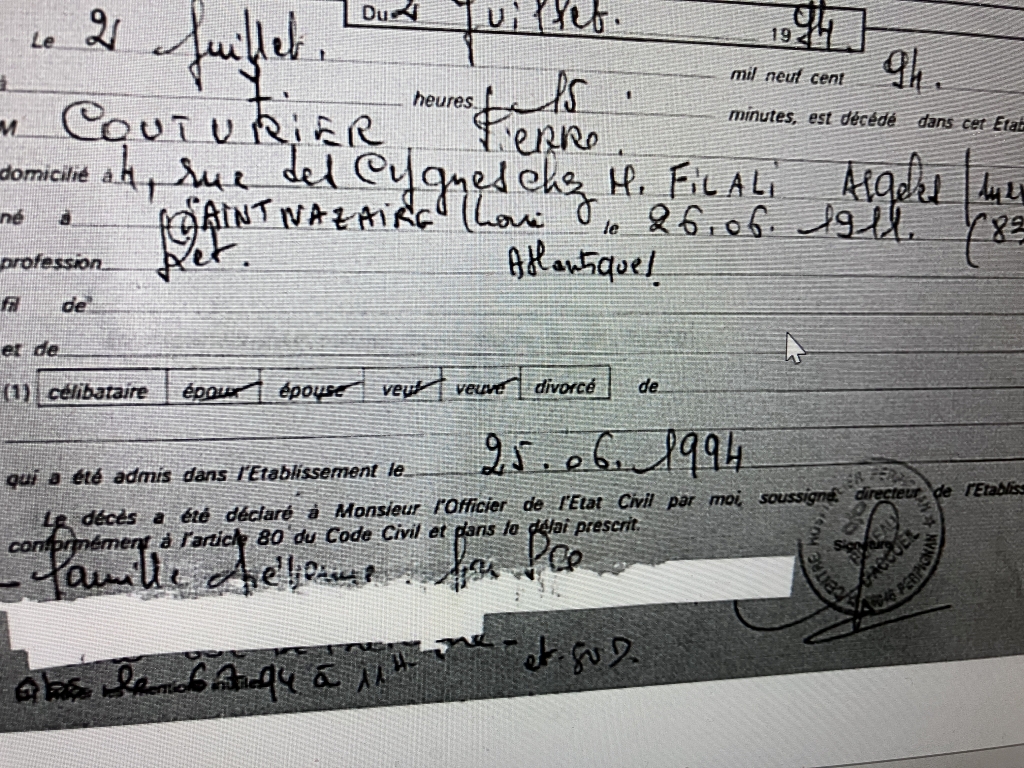 Du 2 Juillet. 1994
Le 2 Juillet. mil neuf cent 94.
à 7. heures 15. minutes, est décédé dans cet Etab
M COUTURIER Pierre.
domicilié à 4, rue des Cygnes chez M. FILALI Argeles
né à SAINT NAZAIRE (Loire le 26.06.1911.
Atlantique)
profession Ret.
fil de
et de
(1) célibataire époux épouse veuf veuve divorcé de
qui a été admis dans l'Etablissement le 25.06.1994
Le décès a été déclaré à Monsieur l'Officier de l'Etat Civil par moi, soussigné, directeur de l'Etabliss
conformément à l'article 80 du Code Civil et dans le délai prescrit.
Signature
famille
à 11H